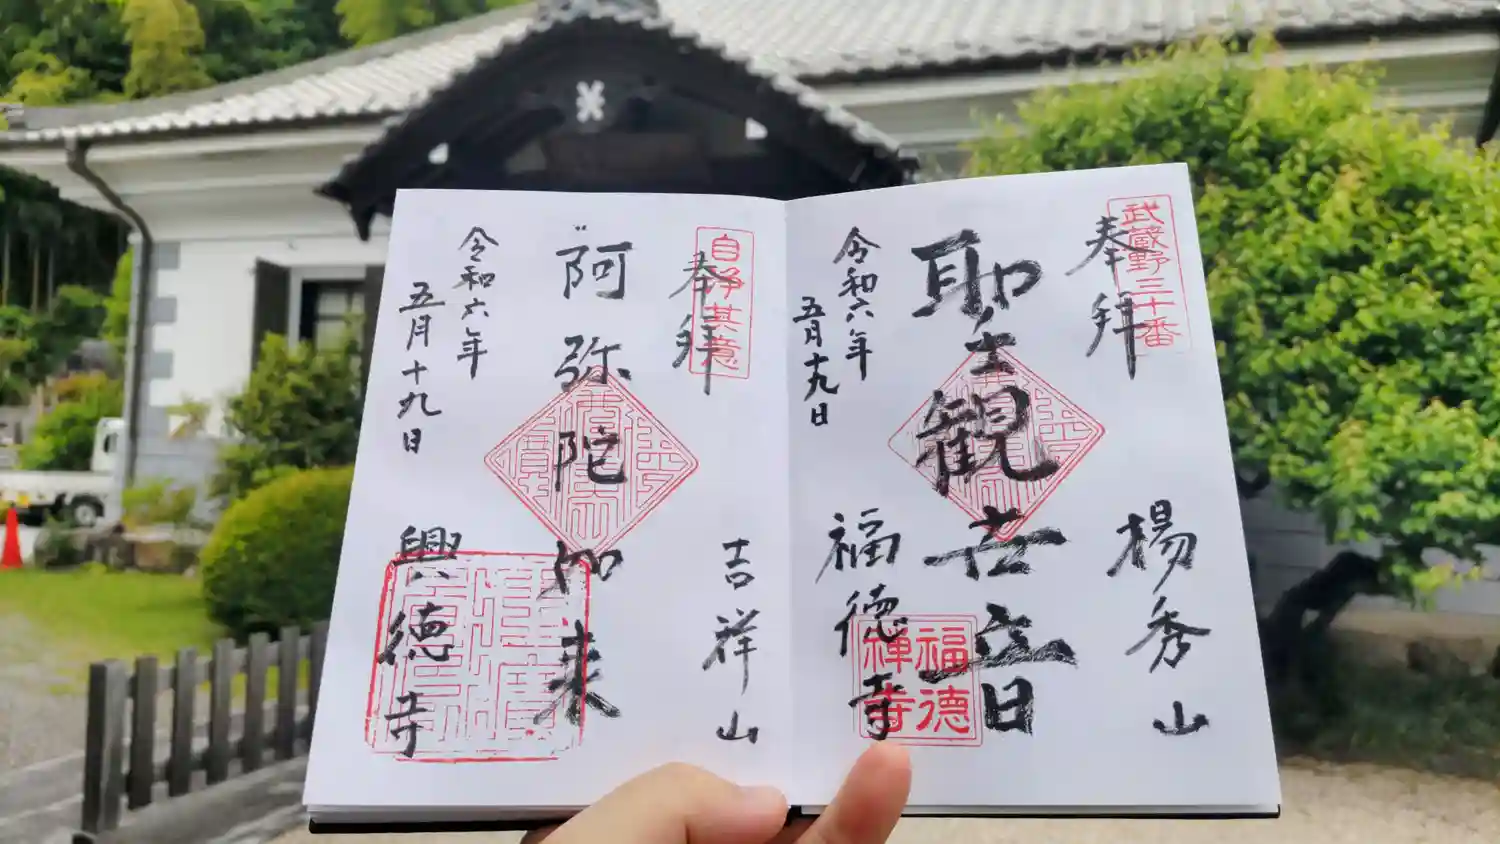 武蔵野三十番
奉拝
楊秀山
聖観世音
福徳寺
福徳禅寺
令和六年
五月十九日
自浄其意
奉拝
吉祥山
阿弥陀如来
興徳寺
令和六年
五月十九日